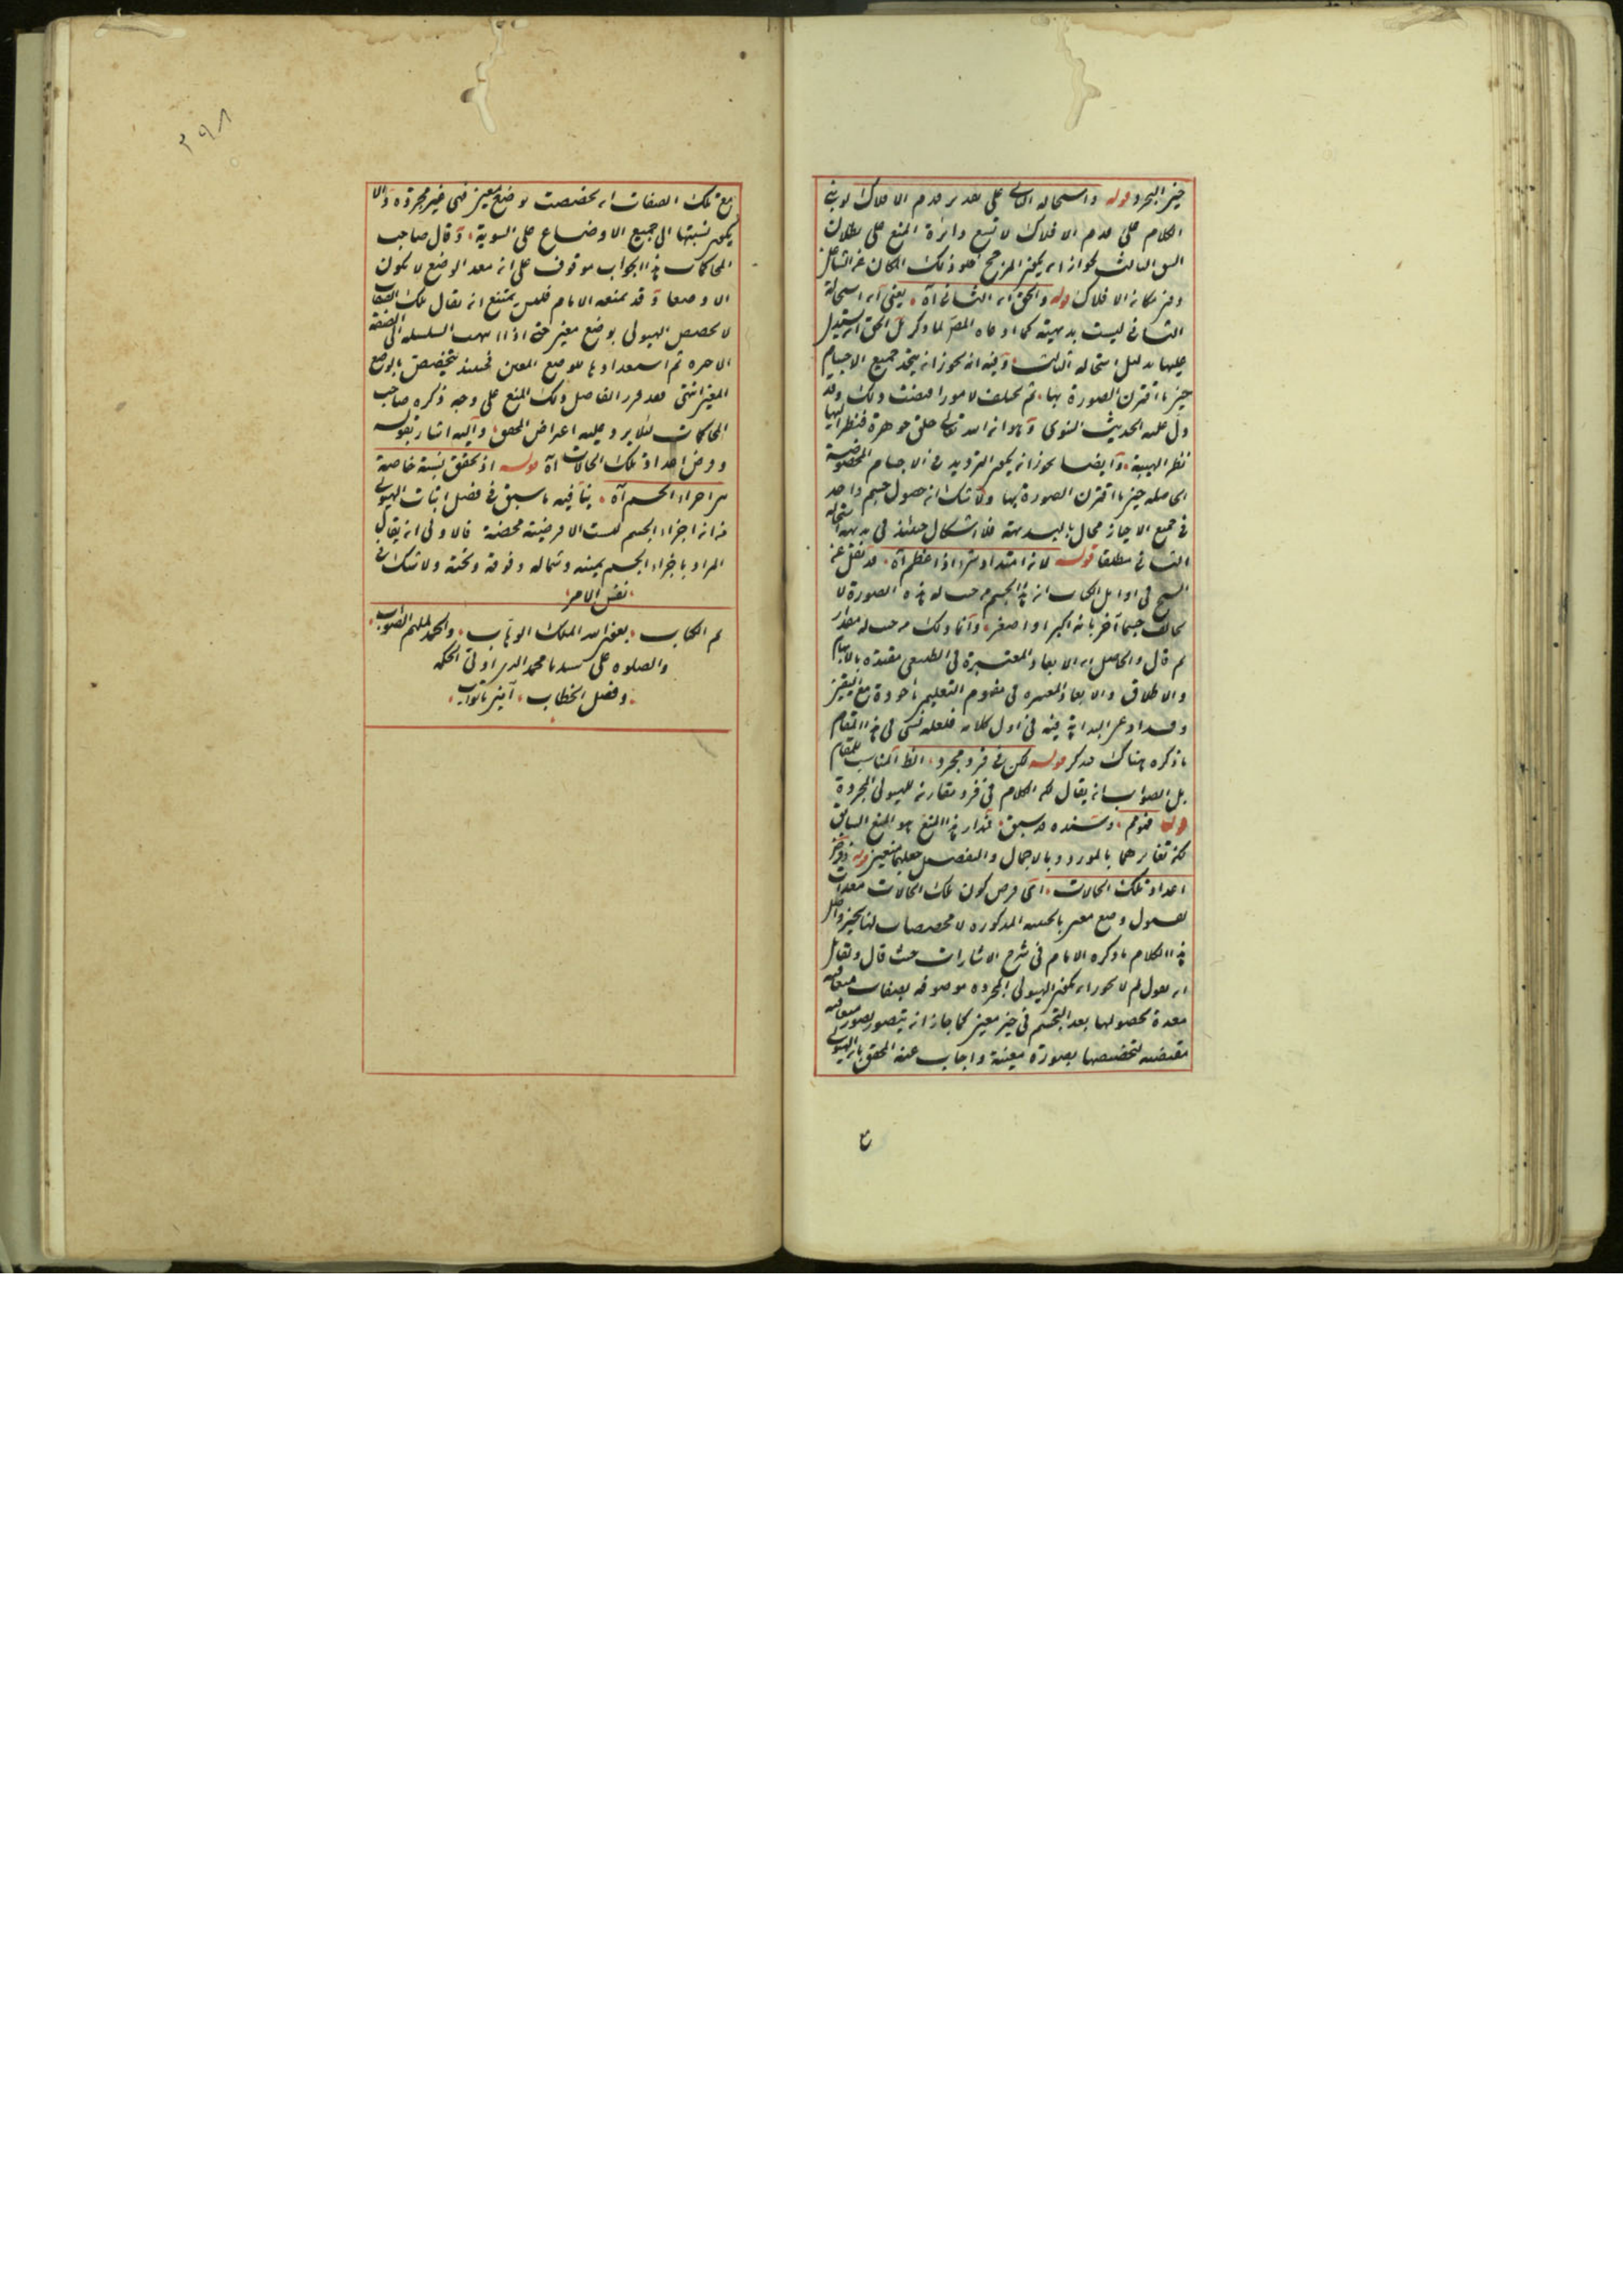 حيز التجرد قوله واستحالة الثاني على تقدير قدم الافلاك لو بني
الكلام على قدم الافلاك لا تسع دائرة المنع على بطلان
الشق الثالث لجواز ان يكون المرجح خلو ذلك المكان عن الشاغل
قوله والحق ان الثاني آه يعني ان استحالة
الثاني ليست بديهية كما ادعاه المص لما ذكر بل الحق انه يستدل
عليها بدليل استحالة الثالث وفيه انه يجوز ان يتخذ جميع الاجسام
حيز ما اقترن الصورة بها ثم تخلف لامور اقتضت ذلك وقد
دل عليه الحديث النبوي وهو ان الله تعالى خلق جوهرة فنظر اليها
نظر الهيبة وايضا يجوز ان يكون الترديد في الاجسام المخصوصة
الحاصلة حيز ما اقترن الصورة بها ولا شك ان حصول جسم واحد
في جميع الاحياز محال بالبديهة فلا اشكال حينئذ في بديهة استحالة
الثاني مطلقا قوله لانه امتداد آه قد نقل عن
الشيخ في اوايل الكتاب ان هذا الجسم من حيث له هذه الصورة لا
يخالف جسما آخر بانه اكبر او اصغر وانما ذلك من حيث له مقدار
ثم قال والحاصل ان الابعاد المعتبرة في الطبيعي مقيدة بالابهام
والاطلاق والابعاد المعتبرة في مفهوم التعليمي ماخوذة مع التعين
وقد ادعى البداهة فيه في اول كلامه فلعله نسي في هذا المقام
ما ذكره هناك فتذكر قوله لكن في فرد مجرد الظ المناسب للمقام
بل الصواب ان يقال لكن الكلام في فرد مقارنة للهيولى المجردة
قوله فتوهم وسنده قد سبق مدار هذا المنع هو المنع السابق
لكن تغايرهما بالمورد وبالاجمال والتفصيل جعلهما منعين قوله وفرض
اعداد تلك الحالات اي فرض كون تلك الحالات معدات
لحصول وضع معين بالحيثية المذكورة لا مخصصات لها بحيز واصل
هذا الكلام ما ذكره الامام في شرح الاشارات حيث قال ولقائل
ان يقول لم لا يجوز ان يكون الهيولى المجردة موصوفة بصفات متعاقبة
معدة لحصولها بعد التجسم في حيز معين كما جاز ان يتصور بصور متعاقبة
مقتضية لتخصصها بصورة معينة واجاب عنه المحقق بان الهيولى
ع
٣٩٨
مع تلك الصفات ان تخصصت بوضع معين فهي غير مجردة والا
يكون نسبتها الى جميع الاوضاع على السوية وقال صاحب
المحاكمات هذا الجواب موقوف على ان معد الوضع لا يكون
الا وضعا وقد يمنعه الامام فليس يمتنع ان يقال تلك الصفات
لا تخصص الهيولى بوضع معين حتى اذا انتهت السلسلة الى الصفة
الاخيرة تم استعدادها للوضع المعين فحينئذ يتخصص بالوضع
المعين انتهى فقد قرر الفاضل ذلك المنع على وجه ذكره صاحب
المحاكمات لئلا يرد عليه اعتراض المحقق واليه اشار بقوله
وفرض اعداد تلك الحالات آه قوله اذ تحقق نسبة خاصة
من اجزاء الجسم آه ينافيه ما سبق في فصل اثبات الهيولى
من ان اجزاء الجسم ليست الا فرضية محضة فالاولى ان يقال
المراد باجزاء الجسم يمينه وشماله وفوقه وتحته ولا شك في
نفس الامر
تم الكتاب بعون الله الملك الوهاب والحمد لملهم الصواب
والصلوة على سيدنا محمد الذي اوتي الحكمة
وفصل الخطاب آمين يا تواب